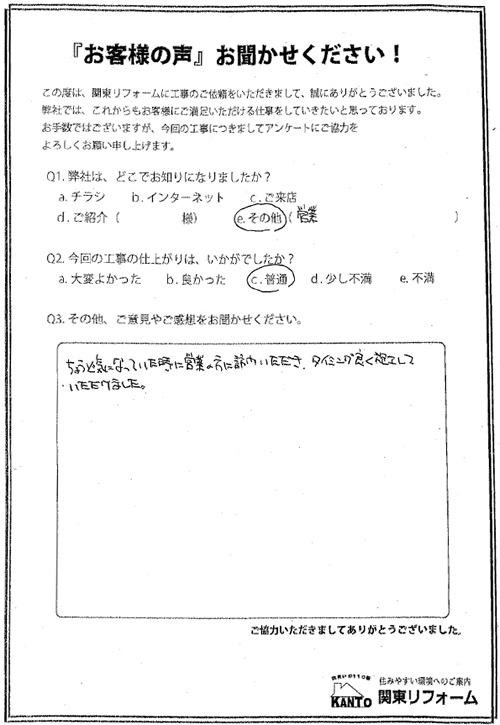 『お客様の声』お聞かせください！
この度は、関東リフォームに工事のご依頼をいただきまして、誠にありがとうございました。
弊社では、これからもお客様にご満足いただける仕事をしていきたいと思っております。
お手数ではございますが、今回の工事につきましてアンケートにご協力を
よろしくお願い申し上げます。
Q1. 弊社は、どこでお知りになりましたか？
a. チラシ b. インターネット c. ご来店
d. ご紹介（ 様） e. その他（営業 ）
Q2. 今回の工事の仕上がりは、いかがでしたか？
a. 大変よかった b. 良かった c. 普通 d. 少し不満 e. 不満
Q3. その他、ご意見やご感想をお聞かせください。
ちょうど気になっていた時に営業の方に訪問いただき、タイミング良く施工して
いただけました。
ご協力いただきましてありがとうございました。
住まいの110番
KANTO
住みやすい環境へのご案内
関東リフォーム